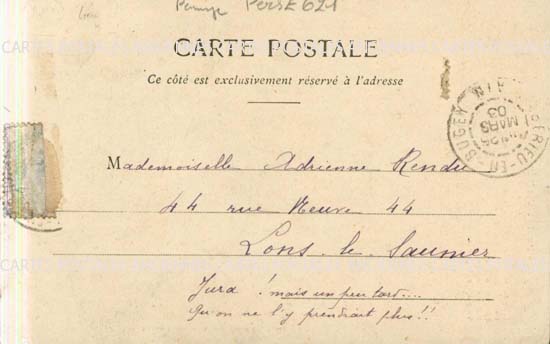 PERSE 621
CARTE POSTALE
Ce côté est exclusivement réservé à l'adresse
AMBÉRIEU-EN-BUGEY
AIN
25
MARS
03
Mademoiselle Adrienne Rendu
44 rue Neuve 44
Lons-le-Saunier
Jura ! mais un peu tard....
Qu'on ne l'y prendrait plus!!